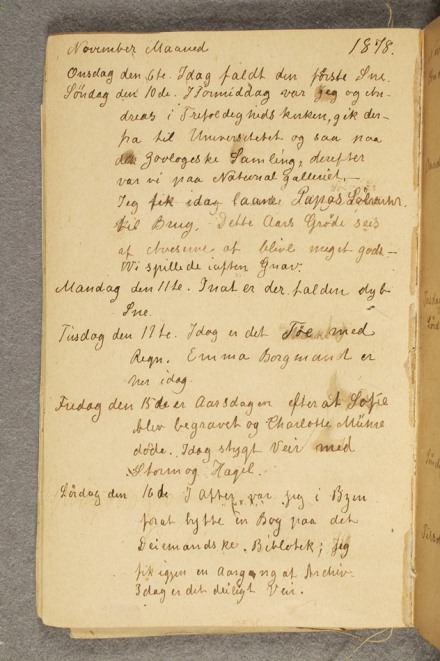 November Maaned 1878.
Onsdag den 6te. Idag faldt den første Sne.
Søndag den 10de. I Formiddag var jeg og An-
dreas i Trefoldighedskirken, gik der-
fra til Universitetet og saa paa
den Zoologeske Samling, derefter
var vi paa National galleriet.—
Jeg fik idag laane Papas
til Brug. Dette Aars Grøde sees
af Aviserne at blive meget god.—
Vi spillede iaften Gnav.
Mandag den 11te. Inat er der falden dyb
Sne.
Tirsdag den 12te. Idag er det Tøe med
Regn. Emma Borgmand er
her idag.
Fredag den 15de er Aarsdagen efter at Sofie
blev begravet og Charlotte
døde. Idag stygt Veir med
Storm og Hagel.
Lørdag den 16de I Aften var jeg i Byen
forat bytte en Bog paa det
Deiemandske. Bibliotek; Jeg
fik igjen en Aargang af Archiv.
Idag er det deiligt Veir.